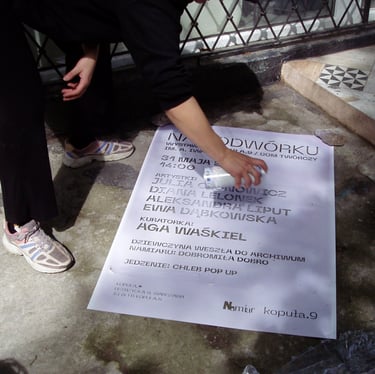 NA PODWÓRKU
31 MAJA
14:00
ARTYSTKI:
JULIA
DIANA LELONEK
ALEKSANDRA LIPUT
EWA DĄBKOWSKA
KURATORKA:
AGA WAŚKIEL
DZIEWCZYNA WESZŁA DO ARCHIWUM
NAMIARU: DOBROMIŁA DOBRO
JEDZENIE: CHLEB POP UP
KOPUŁA.9
Namiar kopuła.9